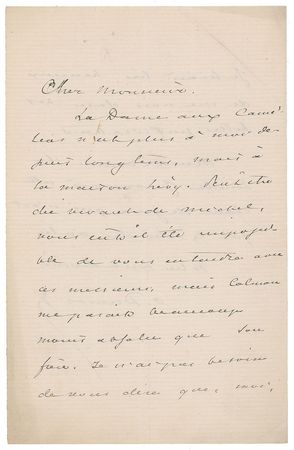 Cher Monsieur.
La Dame aux Camé-
lias n'est plus à moi de-
puis longtems, mais à
la maison Lévy. Peut être
du vivant de Michel,
vous eut-il été impossi-
ble de vous entendre avec
ces messieurs, mais Calman
me paraît beaucoup
moins absolu que son
frère. Je n'ai pas besoin
de vous dire que, moi,